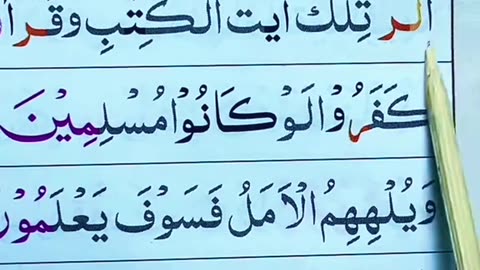 الٓرٰ تِلْكَ اٰیٰتُ الْكِتٰبِ وَ قُرْاٰ
كَفَرُوْا لَوْ كَانُوْا مُسْلِمِیْنَ
وَ یُلْهِهِمُ الْاَمَلُ فَسَوْفَ یَعْلَمُوْنَ